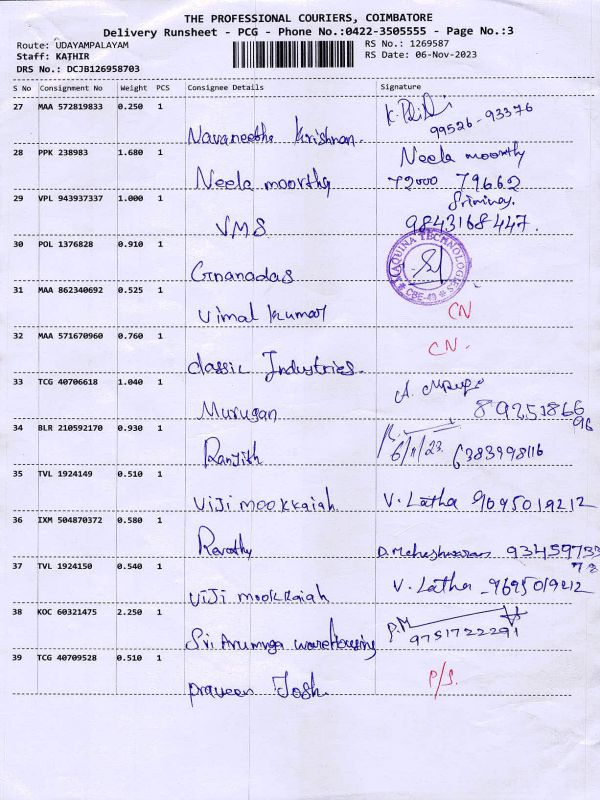 THE PROFESSIONAL COURIERS, COIMBATORE
Delivery Runsheet - PCG - Phone No.:0422-3505555 - Page No.:3
Route: UDAYAMPALAYAM RS No.: 1269587
Staff: KATHIR RS Date: 06-Nov-2023
DRS No.: DCJB126958703
S No Consignment No Weight PCS Consignee Details Signature
27 MAA 572819833 0.250 1
Navaneetha Krishnan. 99526-93376
28 PPK 238983 1.680 1 Neela moorthy
Neela moorthy 72000 79662
29 VPL 943937337 1.000 1
VMS 9843168447.
30 POL 1376828 0.910 1
Gnanadas AQUINA TECHNOLOGIES CBE-49
31 MAA 862340692 0.525 1
Vimal Kumar CN
32 MAA 571670960 0.760 1 CN.
classic Industries.
33 TCG 40706618 1.040 1
Murugan 89251866
96
34 BLR 210592170 0.930 1
Ranjith 6/11/23. 6383998116
35 TVL 1924149 0.510 1
Viji mookkaiah V. Latha 9695019212
36 IXM 504870372 0.580 1
Revathy D. Maheshwaran 93459733
78
37 TVL 1924150 0.540 1 V. Latha -9695019212
Viji mookkaiah
38 KOC 60321475 2.250 1 P.M
Sri Arumuga warehousing 9751722291
39 TCG 40709528 0.510 1 P/S.
praveen Josh.